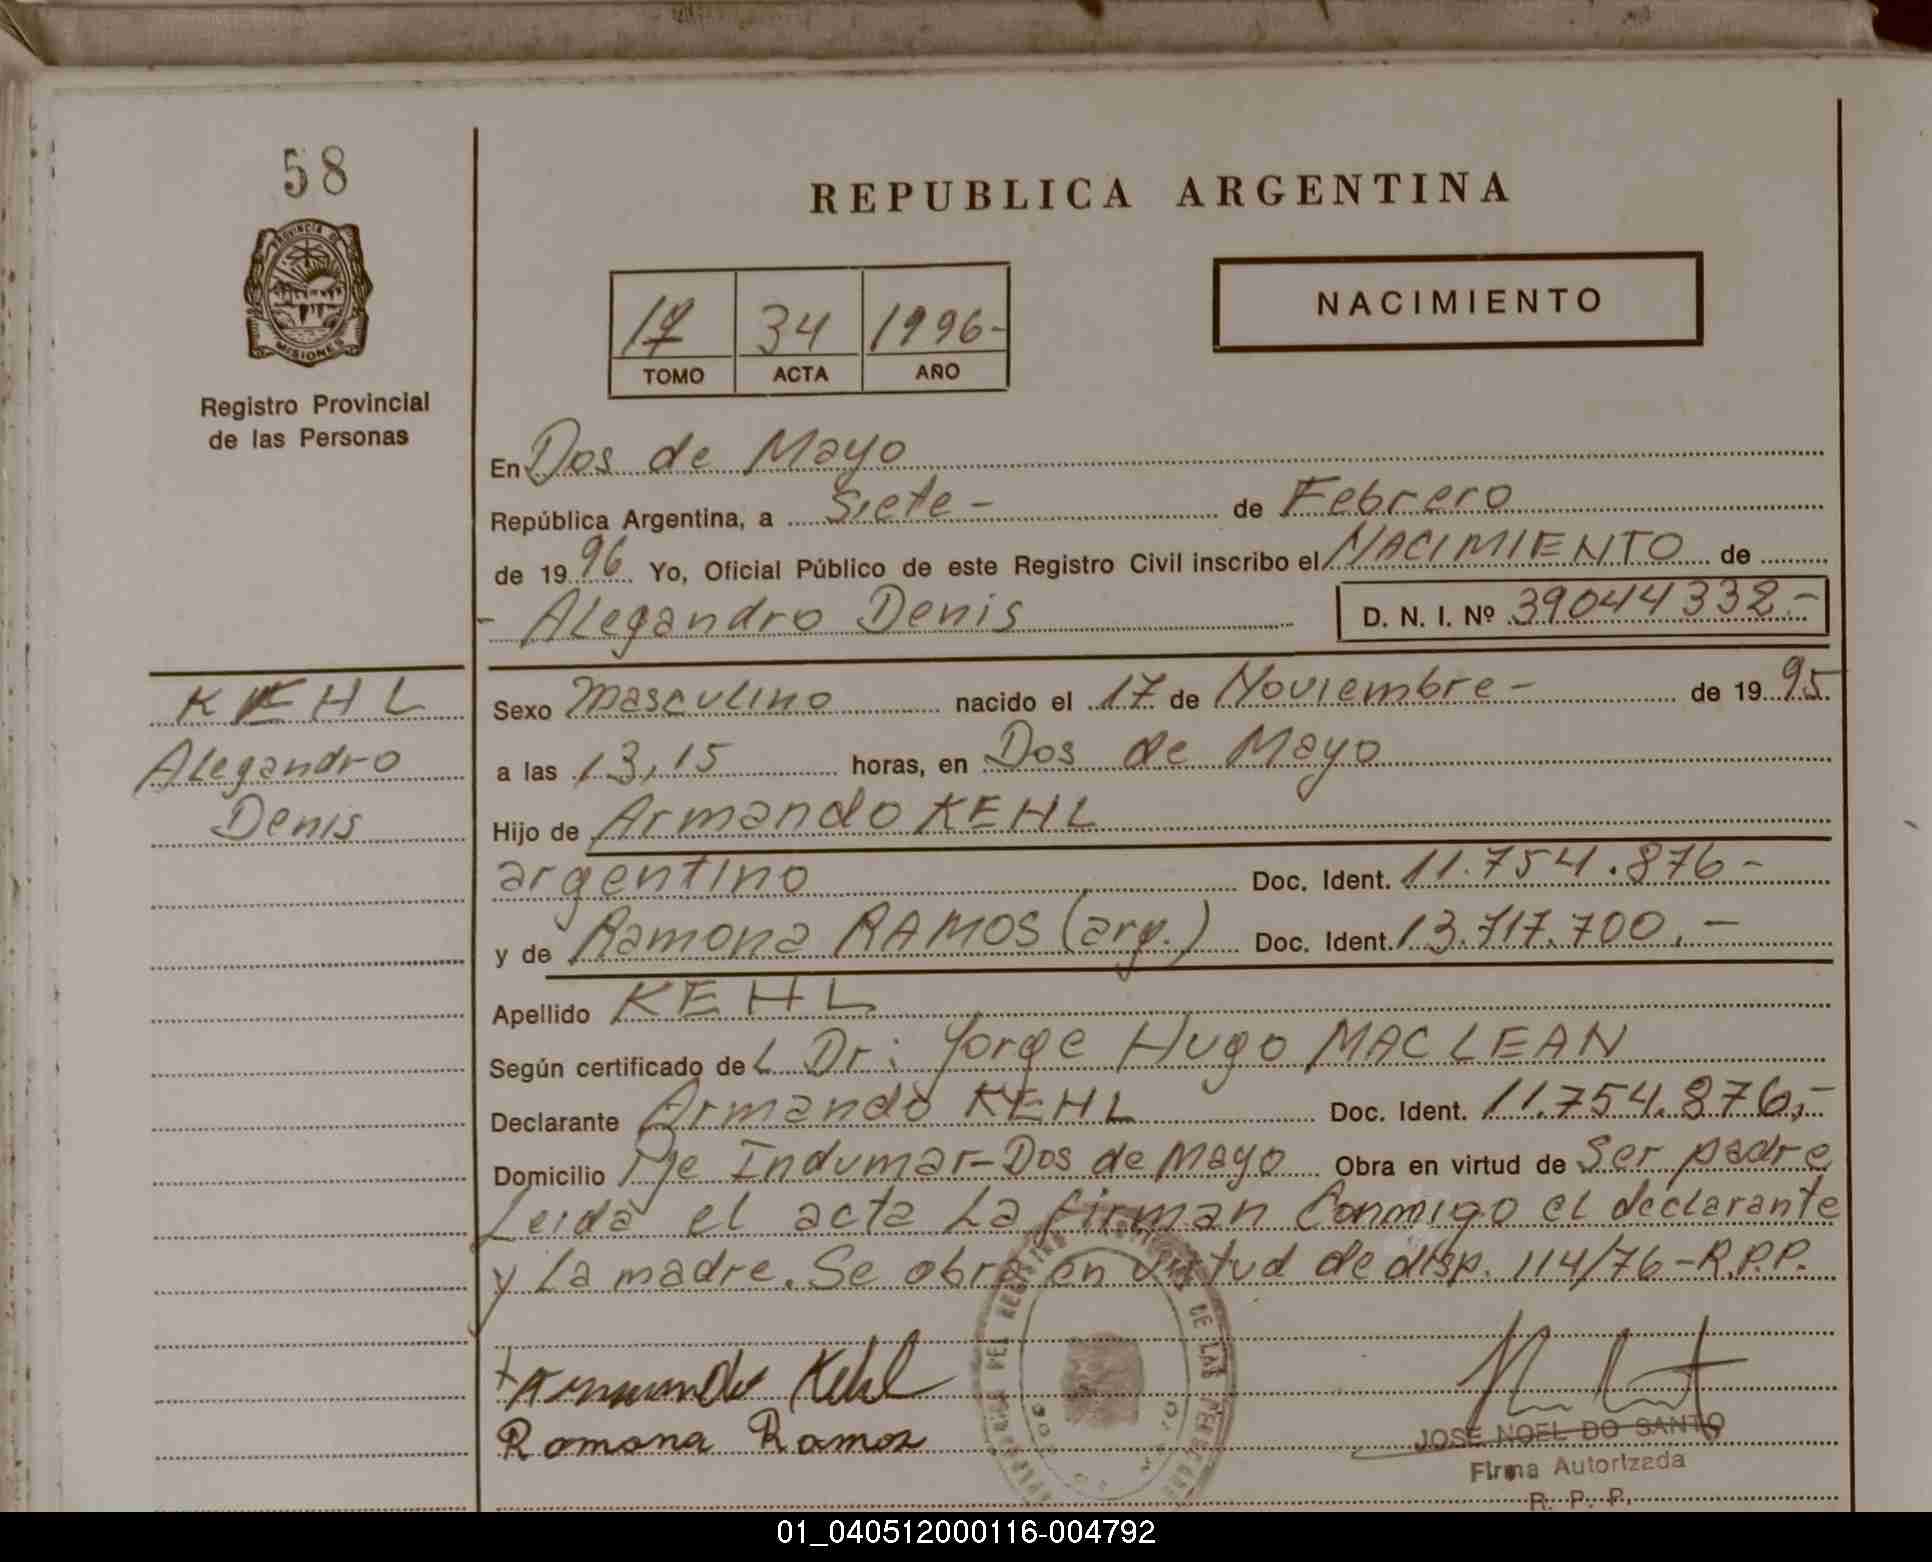 58
PROVINCIA DE
MISIONES
Registro Provincial
de las Personas
REPUBLICA ARGENTINA
34 1996-
TOMO ACTA AÑO
NACIMIENTO
En Dos de Mayo
República Argentina, a Siete - de Febrero
de 1996 Yo, Oficial Público de este Registro Civil inscribo el NACIMIENTO de
- Alegandro Denis D. N. I. Nº 39044332.-
KEHL
Alegandro
Denis
Sexo Masculino nacido el 17 de Noviembre - de 1995.
a las 13,15 horas, en Dos de Mayo
Hijo de Armando KEHL
argentino Doc. Ident. 11.754.876-
y de Ramona RAMOS (arg.) Doc. Ident. 13.717.700.-
Apellido KEHL
Según certificado del Dr: Jorge Hugo MAC LEAN
Declarante Armando KEHL Doc. Ident. 11.754.876,-
Domicilio Pje Indumar-Dos de Mayo Obra en virtud de Ser padre
Leida el acta La firman Conmigo el declarante
y La madre. Se obra en virtud de disp. 114/76-R.P.P.
Armando Kehl
Ramona Ramos
JOSE NOEL DO SANTO
Firma Autorizada
R. P. P.
01_040512000116-004792